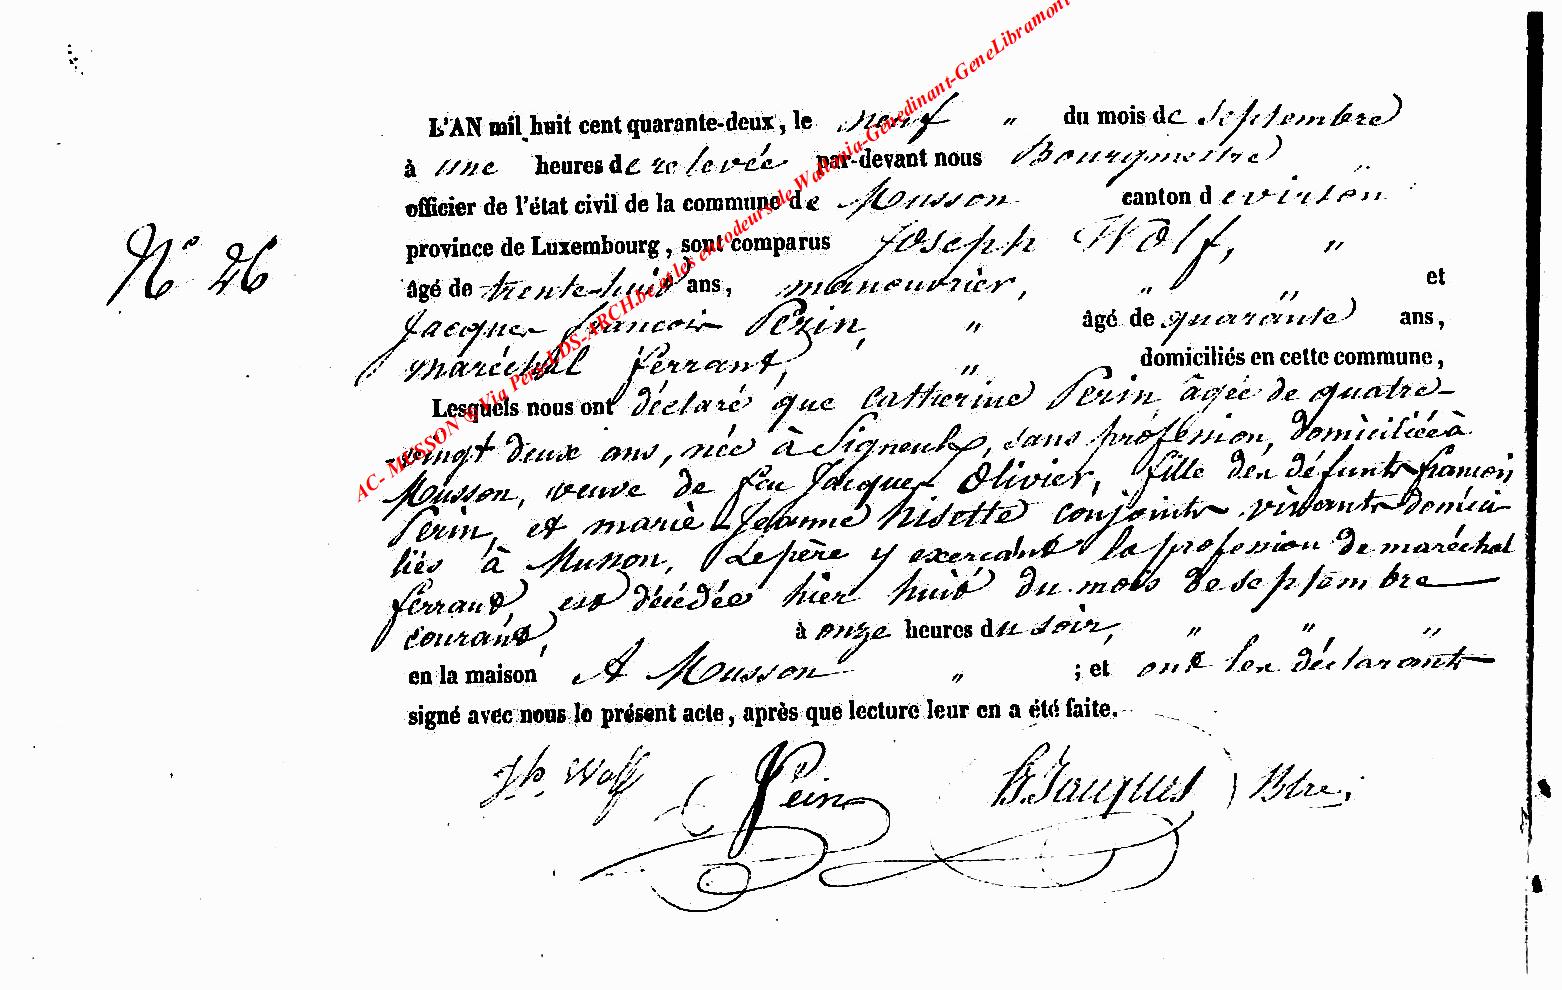 L'AN mil huit cent quarante-deux, le neuf " du mois de septembre
à une heures de relevée par-devant nous Bourgmestre "
officier de l'état civil de la commune de Musson canton de virton
province de Luxembourg, sont comparus Joseph Wolf, "
N° 26
âgé de trente-huit ans, manouvrier, " " et
Jacques françois Perin, " âgé de quarante ans,
maréchal ferrant, " domiciliés en cette commune,
Lesquels nous ont déclaré que Catherine Perin, âgée de quatre-
-vingt deux ans, née à Signeulx, sans profession, domiciliée à
Musson, veuve de feu Jacques Olivier, fille des défunts françois
Perin, et marie-Jeanne Nisette conjoints vivants domici-
liés à Musson, Le père y exerçant la profession de maréchal
ferrant, est décédée hier huit du mois de septembre
courant, à onze heures du soir, " " "
en la maison A Musson " ; et ont les déclarants
signé avec nous le présent acte, après que lecture leur en a été faite.
Jh. Wolf Perin Jacques Btre.
AC- MUSSON @ Via Pers LDS-ARCH.be et les encodeurs de Wallonia-Genedinant-GeneLibramont